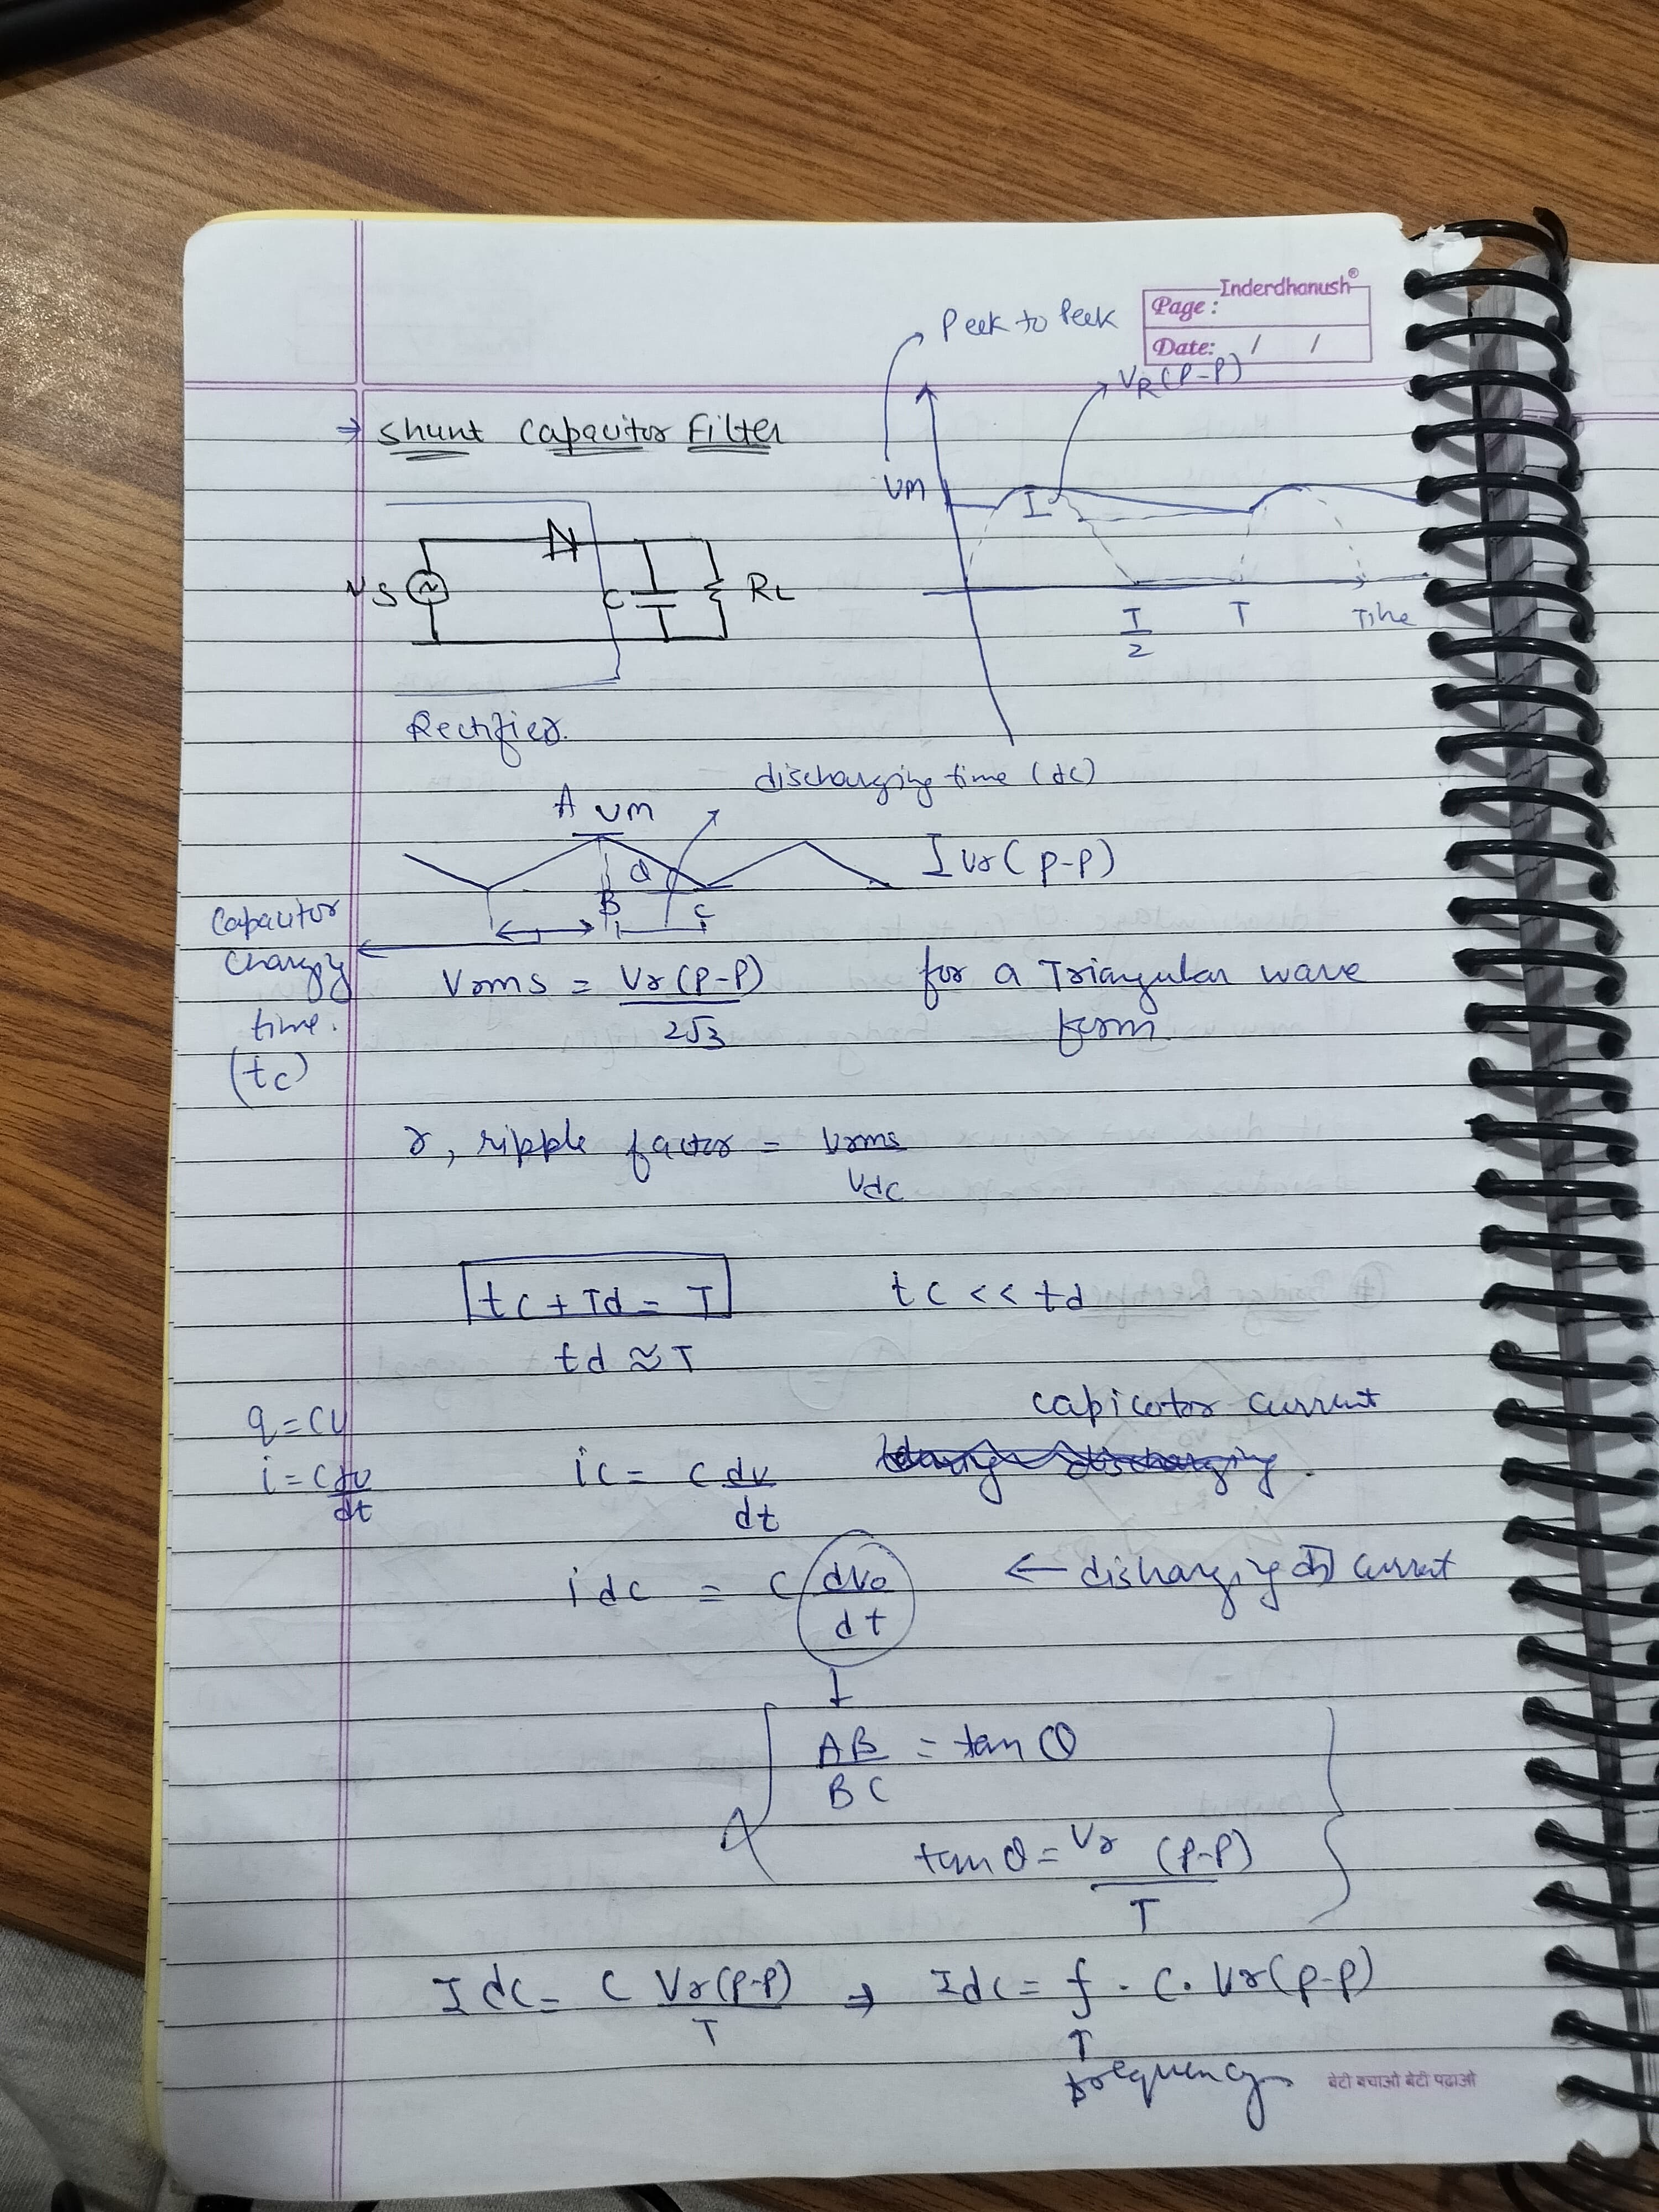 Inderdhanush®
Page :
Date: / /
Peek to Peek
VR (P-P)
→ Shunt Capacitor Filter
VM
I
VS
C
RL
T/2
T
Time
Rectifier.
discharging time (dc)
A VM
θ
B
C
I Vr (p-p)
Capacitor
charging
time.
(tc)
Vrms = Vr (P-P) / 2√3
for a Triangular wave
form
r, ripple factor = Vrms / Vdc
tc + Td = T
tc << td
td ≈ T
q = CV
i = C dv/dt
capicator current
ic = C dv/dt
idc = C dvo/dt
← disharging current
↓
AB/BC = tan θ
tan θ = Vr (p-p) / T
Idc = C Vr(p-p) / T ⇒ Idc = f . C. Vr (p-p)
↑
frequency
बेटी बचाओ बेटी पढ़ाओ